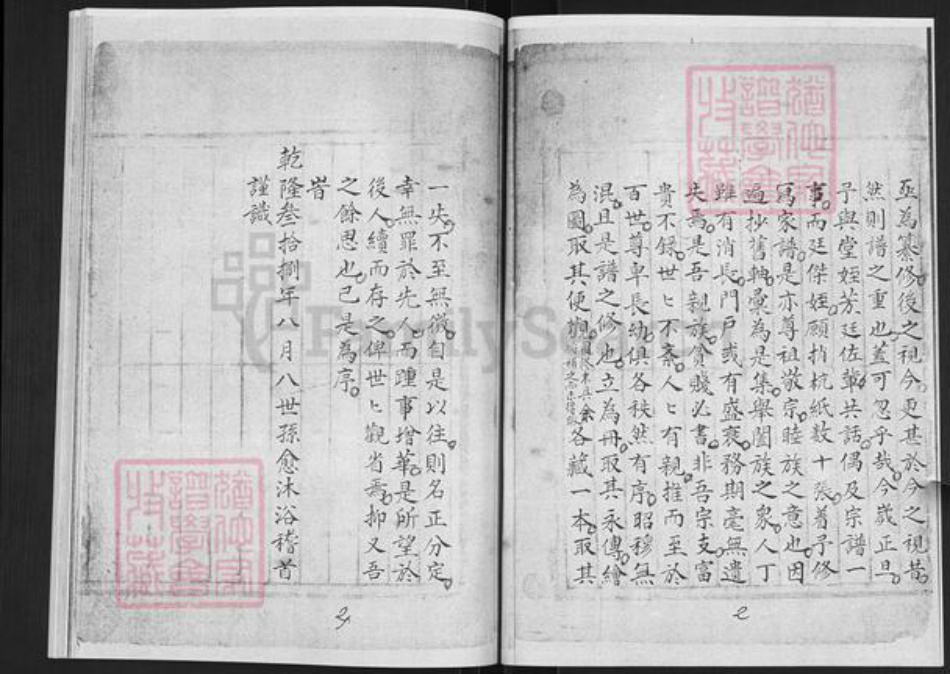 亟為纂修後之視今更甚於今之視昔
然則譜之重也蓋可忽乎哉今歲正旦
予與堂姪芳廷佐輩共話偶及宗譜一
事而廷傑姪願捐杭紙数十張着予修
寫家譜是亦尊祖敬宗睦族之意也因
遍抄舊軸彙為是集舉闔族之衆人丁
雖有消長門戶或有盛衰務期毫無遺
失焉是吾親族貧賤必書非吾宗支富
貴不錄世ヒ不紊人ヒ有親推而至於
百世尊卑長幼俱各秩然有序昭穆無
混且是譜之修也立為冊取其永傳繪
為圖取其便觀 余各藏一本取其
一失不至無徵自是以往則名正分定
幸無罪於先人而踵事增華是所望於
後人續而存之俾世ヒ觀省焉抑又吾
之餘思也已是為序
旹
乾隆叁拾捌年八月八世孫愈沐浴稽首
謹識
2